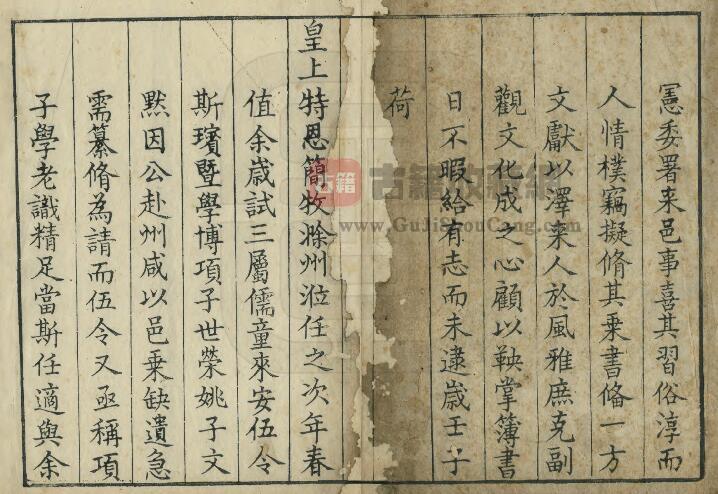 憲委署来邑事喜其習俗淳而
人情樸竊擬脩其乗書俻一方
文獻以澤来人於風雅庶克副
觀文化成之心顧以鞅掌簿書
日不暇給有志而未逮歳壬子
荷
皇上特恩簡牧滁州涖任之次年春
值余歳試三屬儒童來安伍令
斯璸暨學博項子世榮姚子文
黙因公赴州咸以邑乗缺遺急
需纂脩為請而伍令又亟稱項
子學老識精足當斯任適與余
古籍
www.GuJiShouCang.com